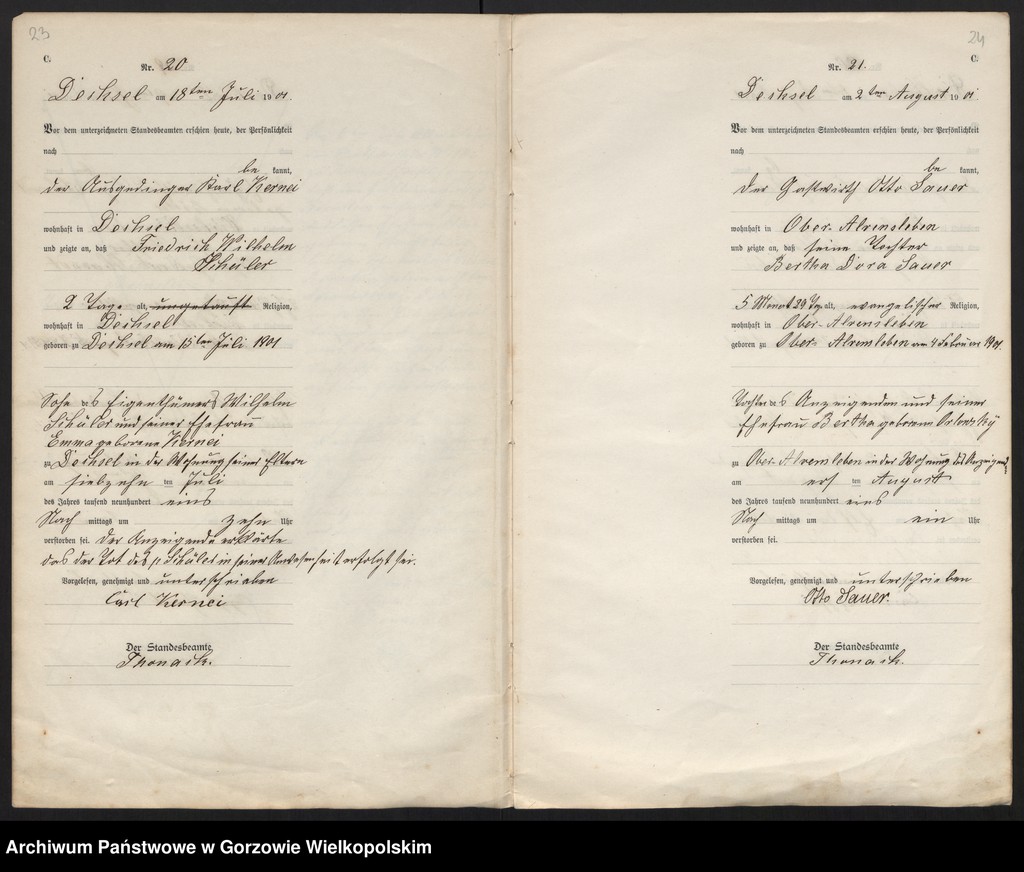 23
C.
Nr. 20
Dechsel am 18ten Juli 1901.
Vor dem unterzeichneten Standesbeamten erschien heute, der Persönlichkeit
nach
be kannt,
der Ausgedinger Karl Kernei
wohnhaft in Dechsel
und zeigte an, daß Friedrich Wilhelm
Schüler
2 Tage alt, ungetauft Religion,
wohnhaft in Dechsel
geboren zu Dechsel am 15ten Juli 1901
Sohn des Eigenthümers Wilhelm
Schüler und seiner Ehefrau
Emma geborene Kernei
zu Dechsel in der Wohnung seiner Eltern
am siebzehn ten Juli
des Jahres tausend neunhundert eins
Nach mittags um zehn Uhr
verstorben sei. Der Anzeigende erklärte
das der Tot des p. Schüler in seiner Anwesenheit erfolgt sei.
Vorgelesen, genehmigt und unterschrieben
Carl Kernei
Der Standesbeamte
Thonack.
24
C.
Nr. 21.
Dechsel am 2ten August 1901
Vor dem unterzeichneten Standesbeamten erschien heute, der Persönlichkeit
nach
be kannt,
der Gastwirth Otto Sauer
wohnhaft in Ober-Alvensleben
und zeigte an, daß seine Tochter
Bertha Dora Sauer
5 Monat 29 Tag alt, evangelischer Religion,
wohnhaft in Ober-Alvensleben
geboren zu Ober-Alvensleben am 4 Februar 1901.
Tochter des Anzeigenden und seiner
Ehefrau Bertha geborene Orlowsky
zu Ober-Alvensleben in der Wohnung des Anzeigend
am ers ten August
des Jahres tausend neunhundert eins
Nach mittags um ein Uhr
verstorben sei.
Vorgelesen, genehmigt und unterschrieben
Otto Sauer.
Der Standesbeamte
Thonack.
Archiwum Państwowe w Gorzowie Wielkopolskim